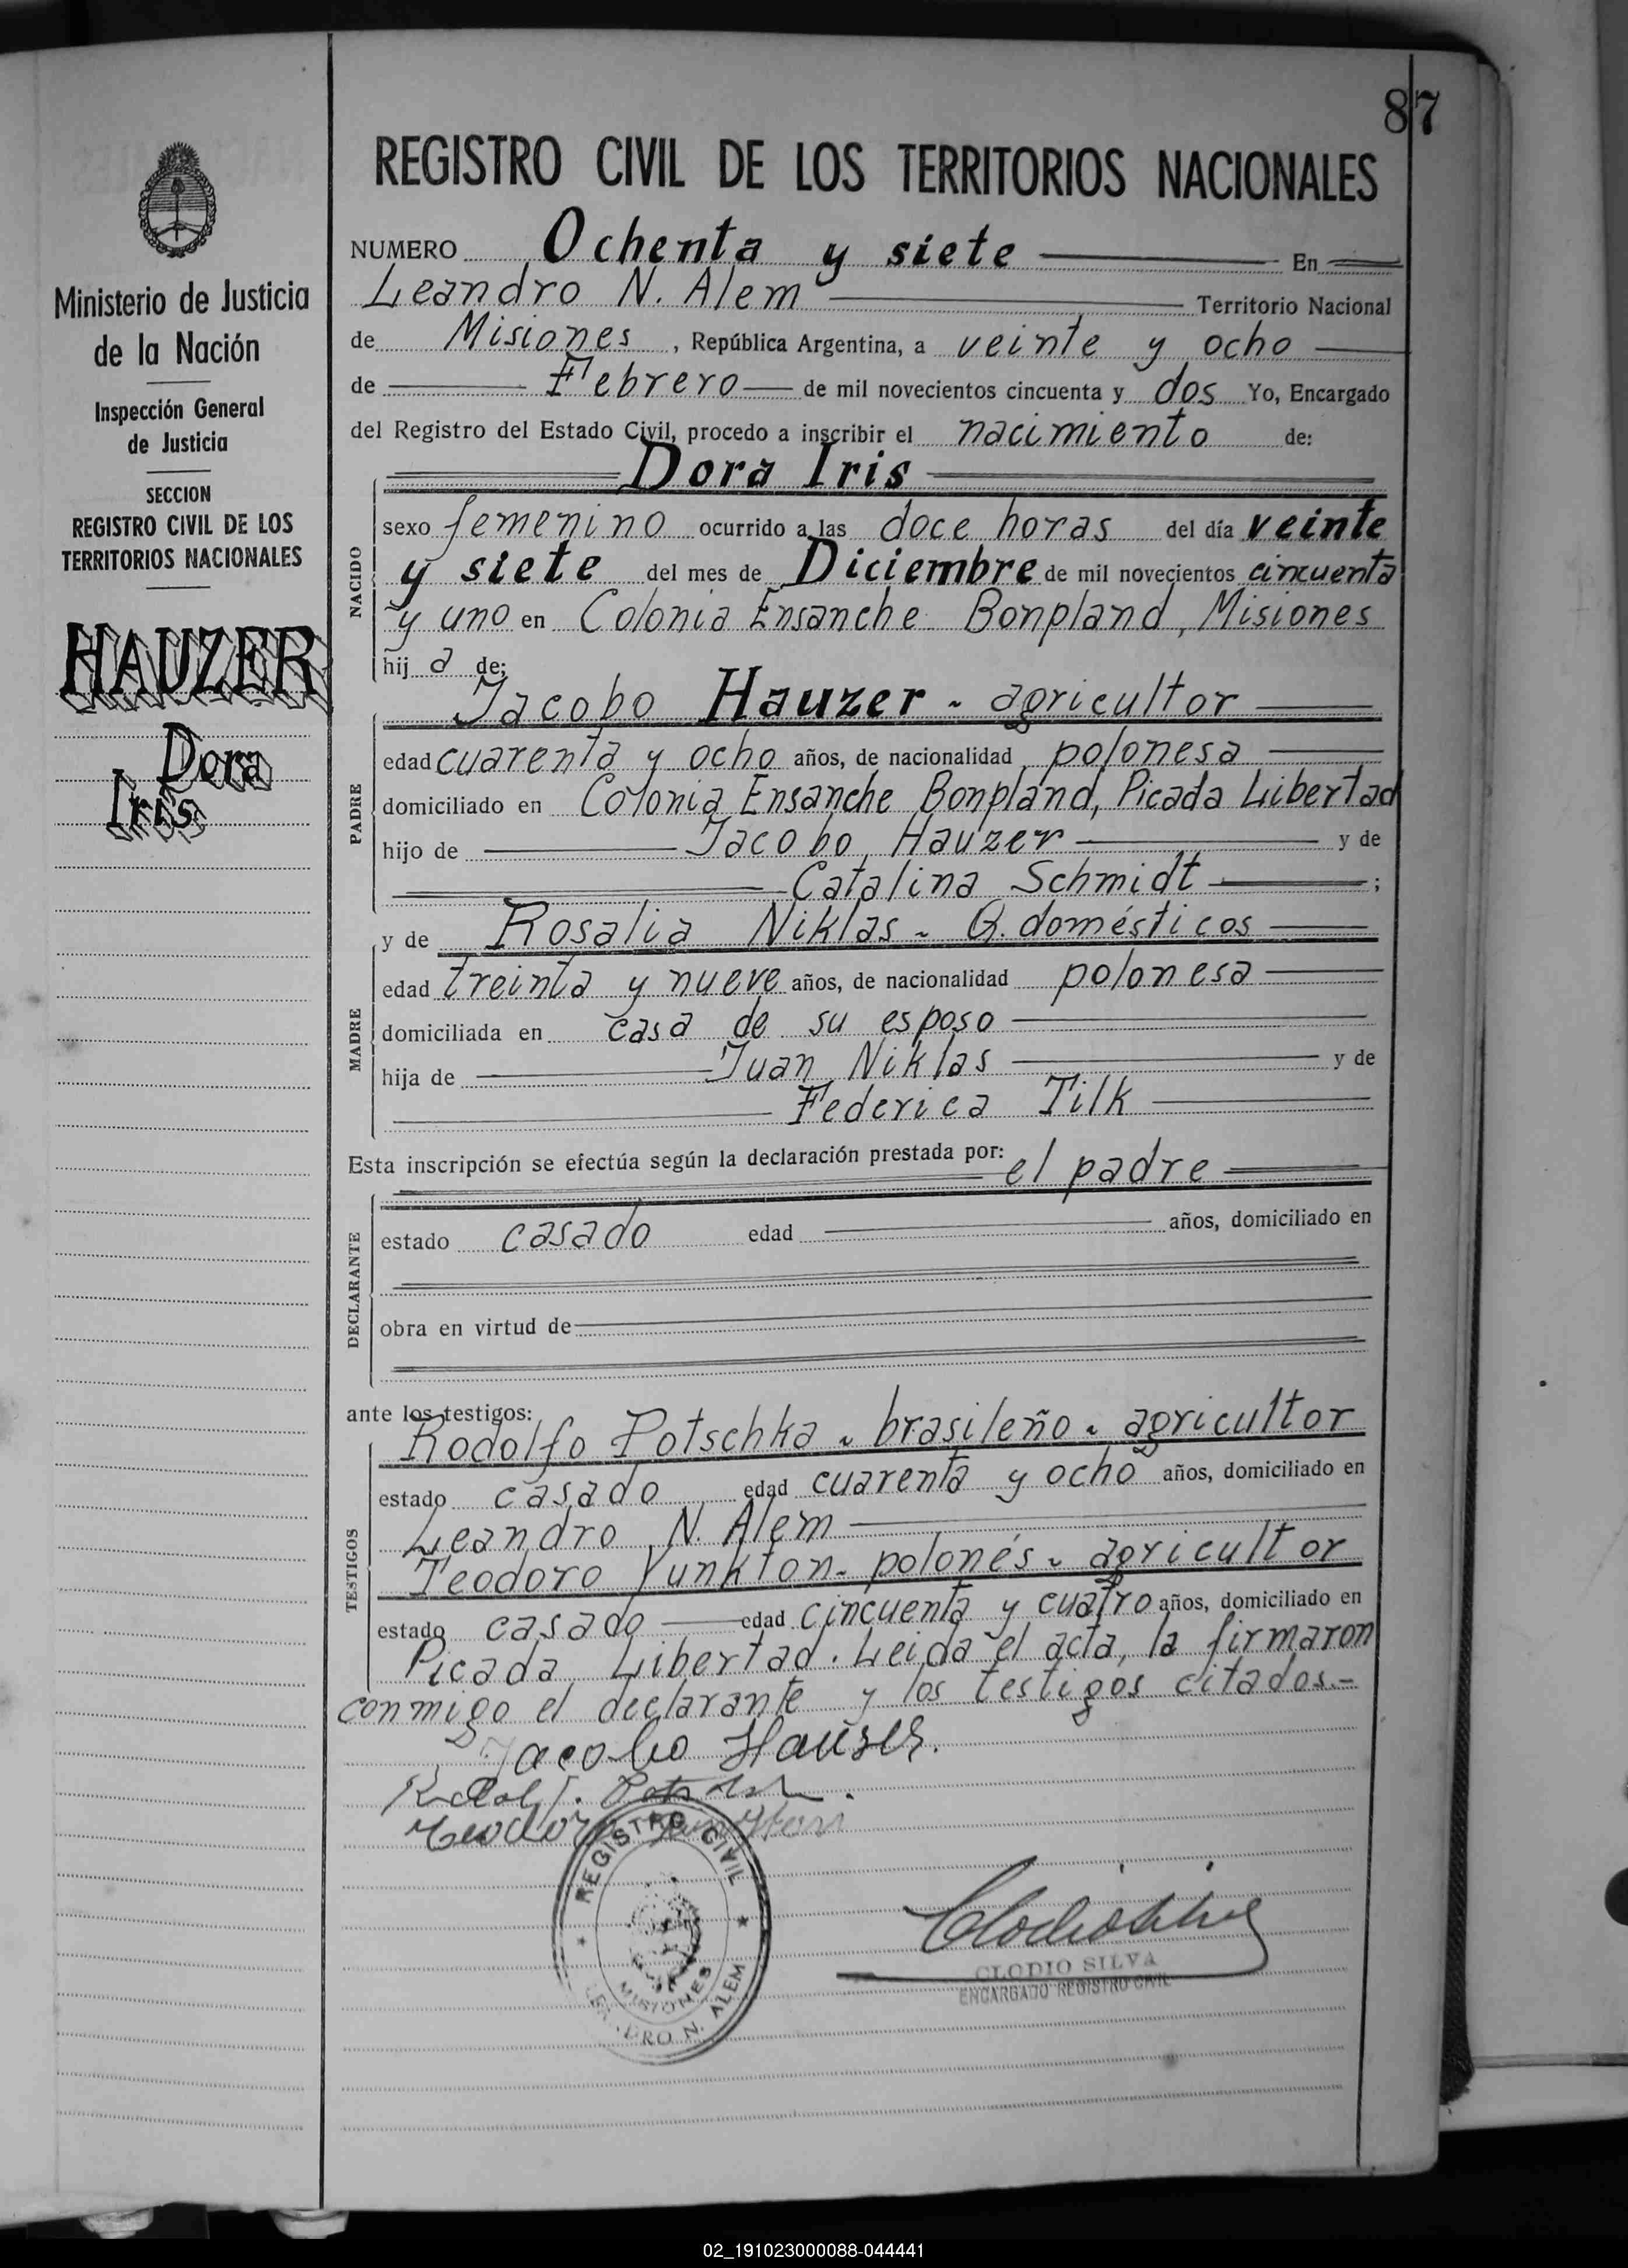 87
REGISTRO CIVIL DE LOS TERRITORIOS NACIONALES
Ministerio de Justicia
de la Nación
Inspección General
de Justicia
SECCION
REGISTRO CIVIL DE LOS
TERRITORIOS NACIONALES
HAUZER
Dora
Iris
NUMERO Ochenta y siete En
Leandro N. Alem Territorio Nacional
de Misiones, República Argentina, a veinte y ocho
de Febrero de mil novecientos cincuenta y dos Yo, Encargado
del Registro del Estado Civil, procedo a inscribir el nacimiento de:
Dora Iris
NACIDO
sexo femenino ocurrido a las doce horas del día veinte
y siete del mes de Diciembre de mil novecientos cincuenta
y uno en Colonia Ensanche Bonpland, Misiones
hij a de:
Jacobo Hauzer - agricultor
PADRE
edad cuarenta y ocho años, de nacionalidad polonesa
domiciliado en Colonia Ensanche Bonpland, Picada Libertad
hijo de Jacobo Hauzer y de
Catalina Schmidt ;
y de Rosalia Niklas - Q. domésticos
MADRE
edad treinta y nueve años, de nacionalidad polonesa
domiciliada en casa de su esposo
hija de Juan Niklas y de
Federica Tilk
Esta inscripción se efectúa según la declaración prestada por: el padre
DECLARANTE
estado casado edad años, domiciliado en
obra en virtud de
ante los testigos:
Rodolfo Potschka - brasileño - agricultor
TESTIGOS
estado casado edad cuarenta y ocho años, domiciliado en
Leandro N. Alem
Teodoro Yunkton - polonés - agricultor
estado casado edad cincuenta y cuatro años, domiciliado en
Picada Libertad. Leida el acta, la firmaron
conmigo el declarante y los testigos citados.-
Jacobo Hauser.
REGISTRO CIVIL
MISIONES
LEANDRO N. ALEM
Clodio Silva
CLODIO SILVA
ENCARGADO REGISTRO CIVIL
02_191023000088-044441